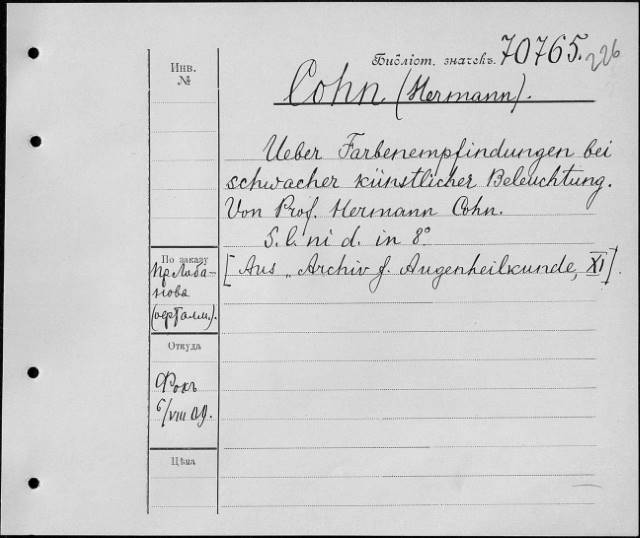 Библіот. значекъ. 70765. 226
Инв.
№
Cohn (Hermann).
Ueber Farbenempfindungen bei
schwacher künstlicher Beleuchtung.
Von Prof. Hermann Cohn.
S. l. ni d. in 8º
[Aus „Archiv f. Augenheilkunde, XI].
По заказу
Пр. Лоба-
нова
(офталм.).
Откуда
Фокъ
6/VIII 09.
Цѣна